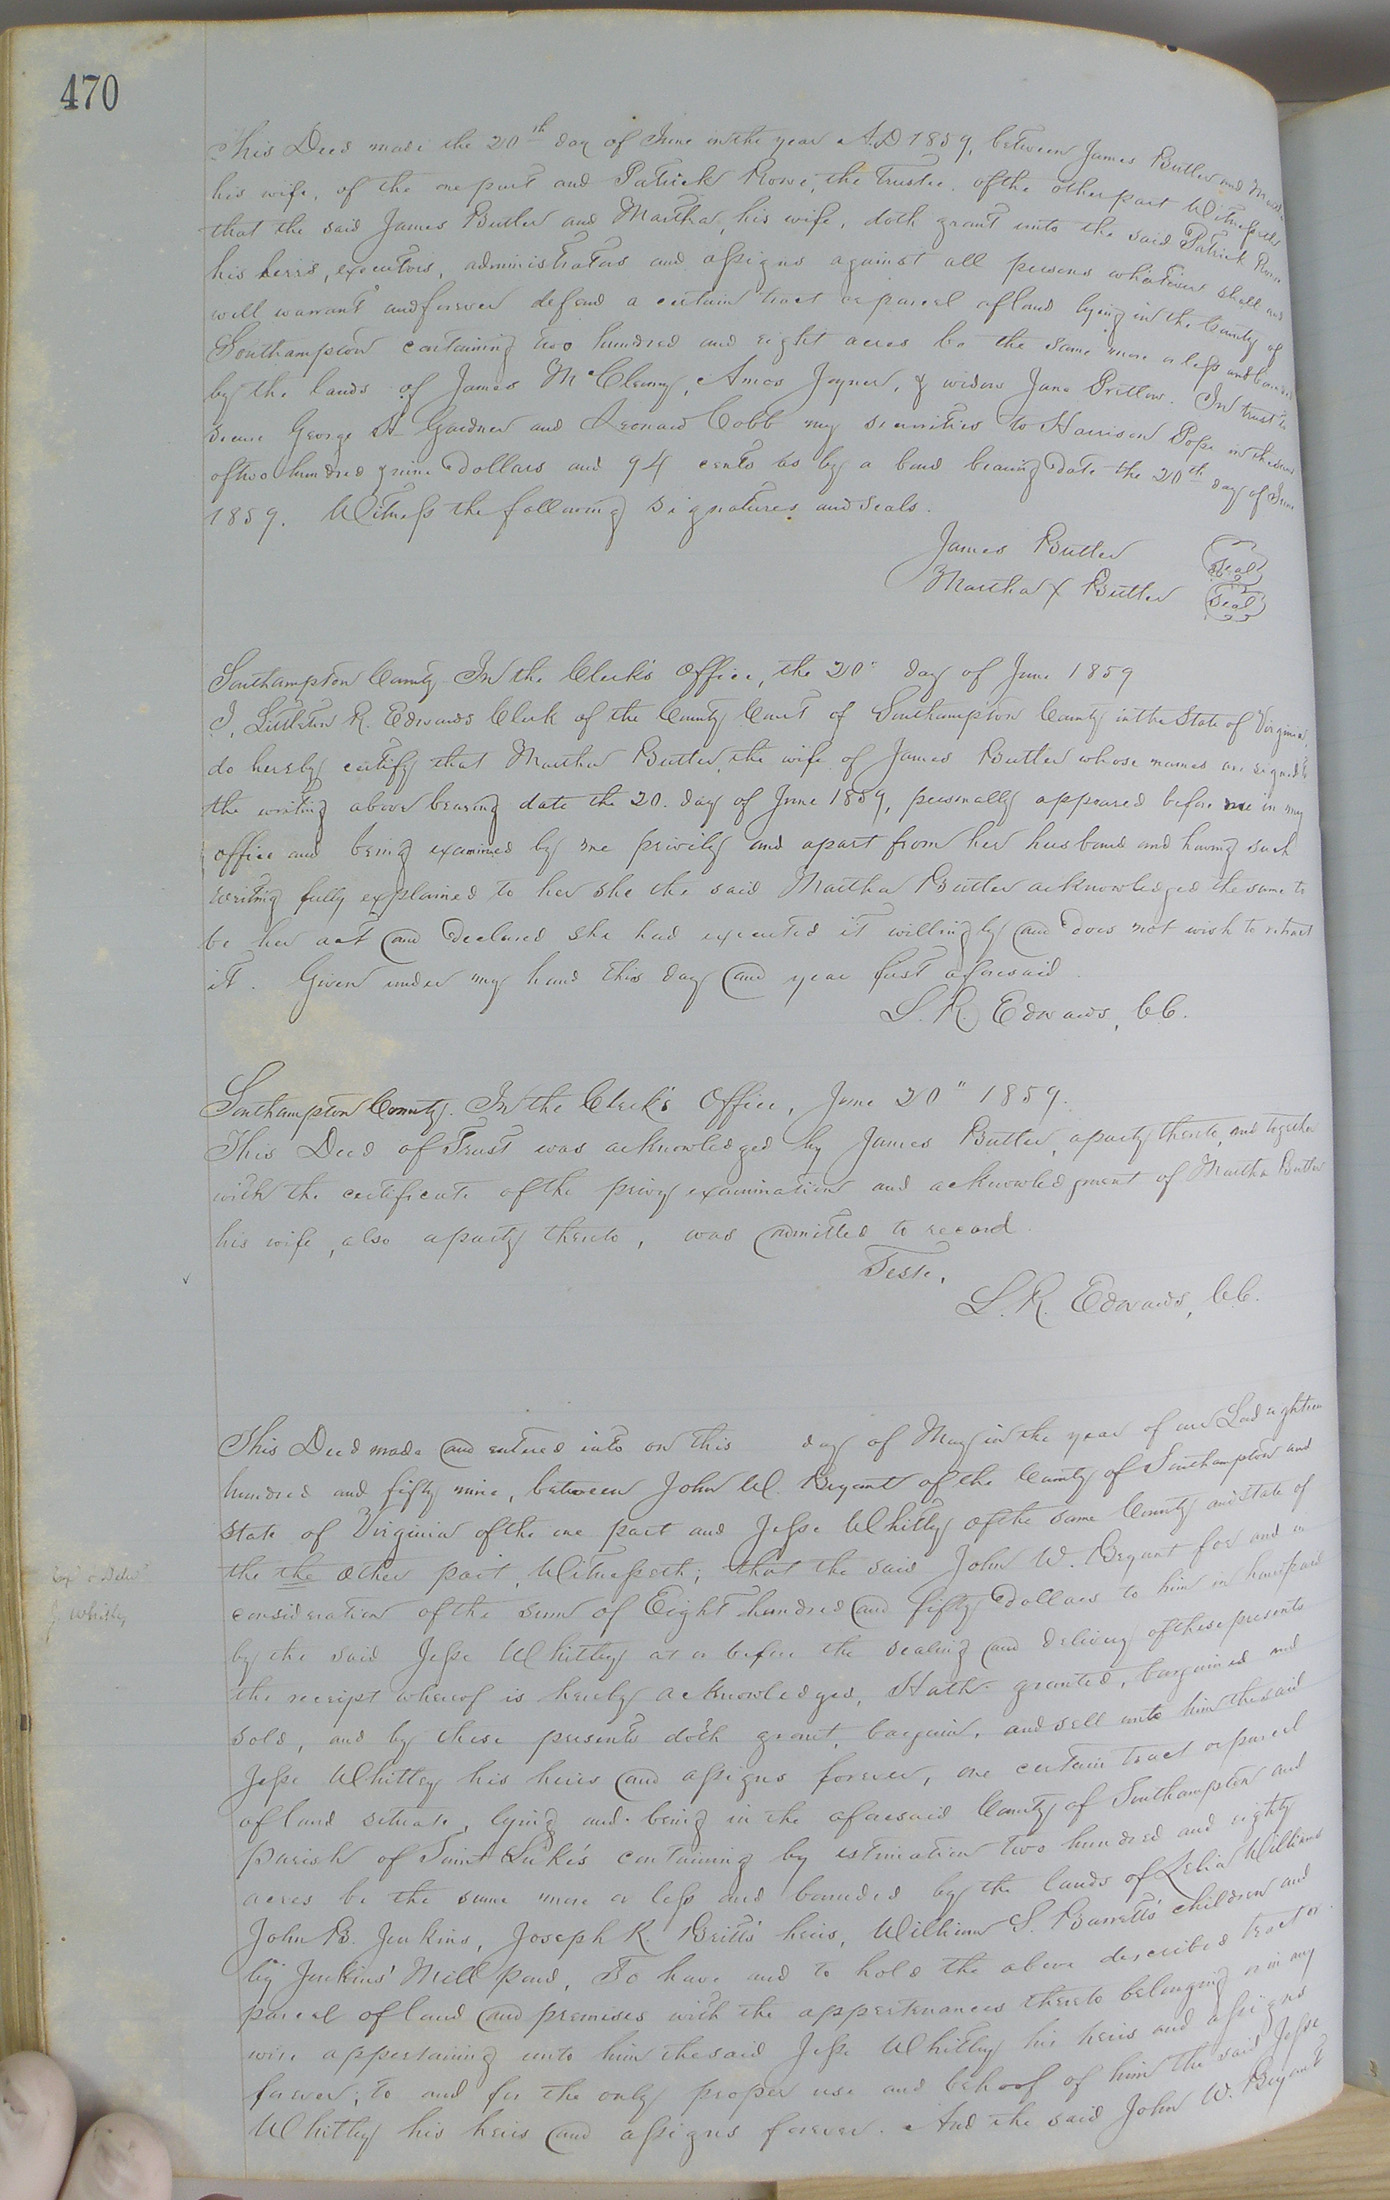 470
This Deed made the 20th day of June in the year A.D 1859, between James Butler and Martha
his wife, of the one part and Patrick Rowe, the Trustee, of the other part Witnesseth
that the said James Butler and Martha, his wife, doth grant unto the said Patrick Rowe
his heirs, executors, administrators and assigns against all persons whatsoever shall and
will warrant and forever defend a certain tract or parcel of land lying in the County of
Southampton containing two hundred and eight acres be the same more or less and bounded
by the lands of James McClenny, Amos Joyner, & widow Jane Pretlow. In trust to
secure George A Gardner and Leonard Cobb my securities to Harrison Pope in the sum
of two hundred & nine Dollars and 94 cents as by a bond bearing date the 20th day of June
1859. Witness the following signatures and seals.
James Butler Seal
Martha X Butler Seal
Southampton County In the Clerk's Office, the 20" day of June 1859
I, Littleton R. Edwards Clerk of the County Court of Southampton County in the State of Virginia,
do hereby certify that Martha Butler, the wife of James Butler whose names are signed to
the writing above bearing date the 20. day of June 1859, personally appeared before me in my
office and being examined by me privily and apart from her husband and having such
writing fully explained to her she the said Martha Butler acknowledged the same to
be her act and declared she had executed it willingly and does not wish to retract
it. Given under my hand this day and year first aforesaid.
L. R. Edwards, CC.
Southampton County. In the Clerk's Office, June 20" 1859.
This Deed of Trust was acknowledged by James Butler, a party thereto, and together
with the certificate of the privy examination and acknowledgment of Martha Butler
his wife, also a party thereto, was admitted to record
Teste,
L. R. Edwards, CC.
This Deed made and entered into on this day of May in the year of our Lord eighteen
hundred and fifty nine, between John W. Bryant of the County of Southampton and
State of Virginia of the one part and Jesse Whitley of the same County and State of
the the other part, Witnesseth; that the said John W. Bryant for and in
consideration of the sum of Eight hundred and fifty Dollars to him in hand paid
by the said Jesse Whitley at or before the sealing and delivery of these presents
J. Whitley
the receipt whereof is hereby acknowledged, Hath granted, bargained and
sold, and by these presents doth grant, bargain, and sell unto him the said
Jesse Whitley his heirs and assigns forever, one certain tract or parcel
of land situate, lying and being in the aforesaid County of Southampton and
Parish of Saint Luke's containing by estimation two hundred and eighty
acres be the same more or less and bounded by the lands of Lelia Williams
John B. Jenkins, Joseph K. Britt's heirs, William S. Barrett's children and
by Jenkins' Mill pond, To have and to hold the above described tract or
parcel of land and premises with the appertenances thereto belonging or in any
wise appertaining unto him the said Jesse Whitley his heirs and assigns
forever; to and for the only proper use and behoof of him the said Jesse
Whitley his heirs and assigns forever. And the said John W. Bryant